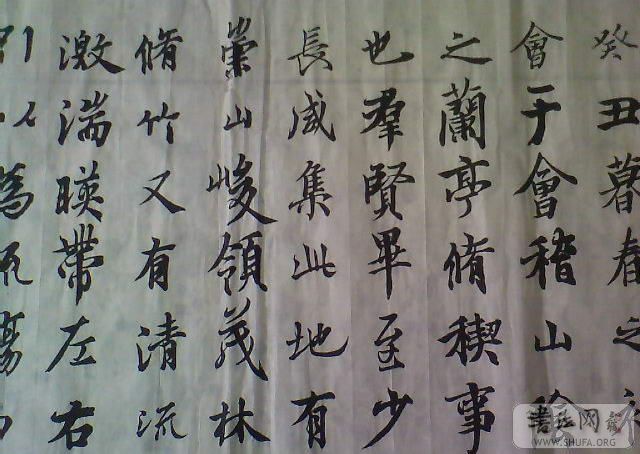 癸丑暮春之
會于會稽山
之蘭亭脩稧事
也羣賢畢至少
長咸集此地有
崇山峻領茂林
脩竹又有清流
激湍暎帶左右
引以為流觴
WWW.SHUFA.ORG